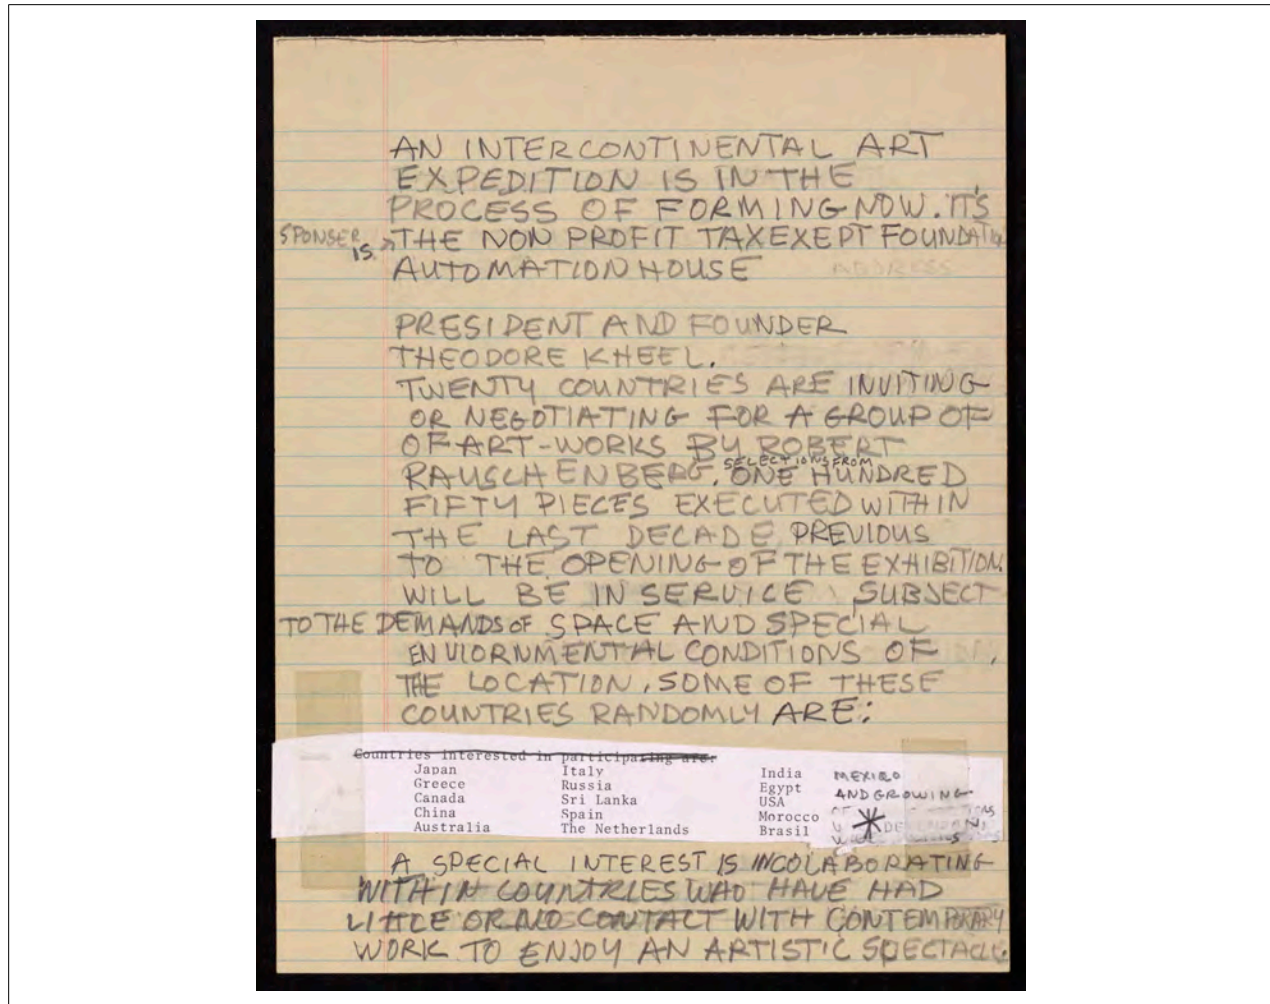 AN INTERCONTINENTAL ART
EXPEDITION IS IN THE
PROCESS OF FORMING NOW. IT'S
SPONSER IS THE NON PROFIT TAXEXEPT FOUNDATION
AUTOMATION HOUSE ADDRESS
PRESIDENT AND FOUNDER
THEODORE KHEEL.
TWENTY COUNTRIES ARE INVITING
OR NEGOTIATING FOR A GROUP OF
OF ART-WORKS BY ROBERT
RAUSCHENBERG. SELECTIONS FROM ONE HUNDRED
FIFTY PIECES EXECUTED WITHIN
THE LAST DECADE PREVIOUS
TO THE OPENING OF THE EXHIBITION.
WILL BE IN SERVICE SUBJECT
TO THE DEMANDS OF SPACE AND SPECIAL
ENVIORNMENTAL CONDITIONS OF
THE LOCATION. SOME OF THESE
COUNTRIES RANDOMLY ARE:
Countries interested in participating are:
Japan Italy India MEXICO
Greece Russia Egypt AND GROWING
Canada Sri Lanka USA
China Spain Morocco
Australia The Netherlands Brasil
A SPECIAL INTEREST IS IN COLABORATING
WITH IN COUNTRIES WHO HAVE HAD
LITTLE OR NO CONTACT WITH CONTEMPORARY
WORK TO ENJOY AN ARTISTIC SPECTACLE